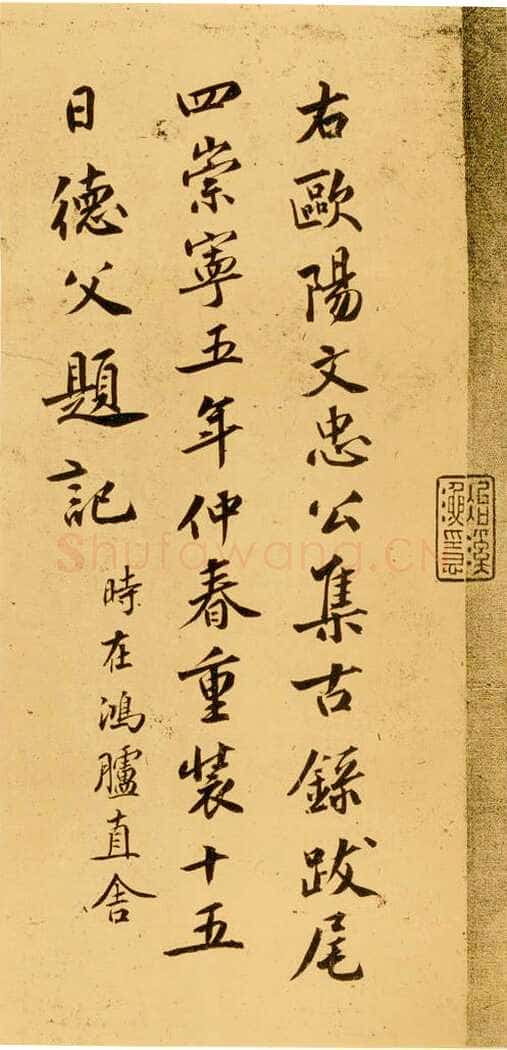 右歐陽文忠公集古錄跋尾
四崇寧五年仲春重裝十五
日德父題記
時在鴻臚直舍
Shufawang.CN